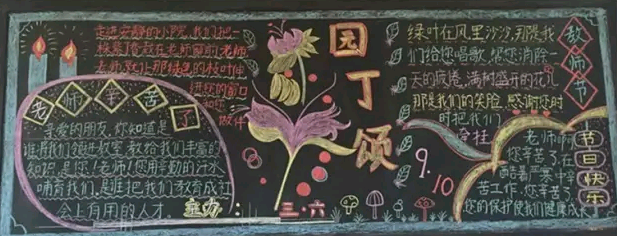 走进安静的小院,我们把一
绿叶在风里沙沙,那是我
们给您唱歌,帮您消除一
天的疲倦,满树盛开的花儿
那是我们的笑脸,感谢您时
时把我们
牵挂
教师节
园丁颂
老师辛苦了
亲爱的朋友,你知道是
谁把我们领进教室 教给我们丰富的
知识是您!老师!您用辛勤的汗水
哺育我们,是谁把我们教育成社
会上有用的人才。
主办:
三·六
9.10
老师啊
您辛苦了,在
酷暑严寒中辛
苦工作,您辛苦了
您的保护使我们健康成长
节日快乐